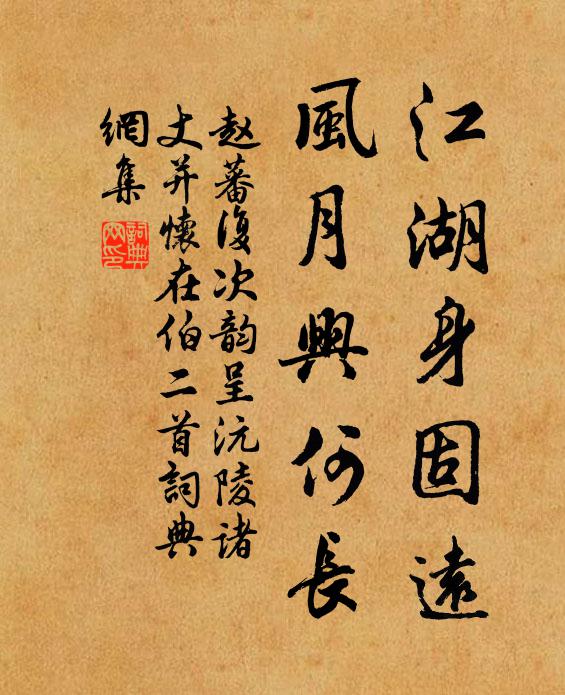 江湖身固遠
風月興何長
赵蕃復次韵呈沅陵诸
丈并懷在伯二首詞典
網集
詞典
网印